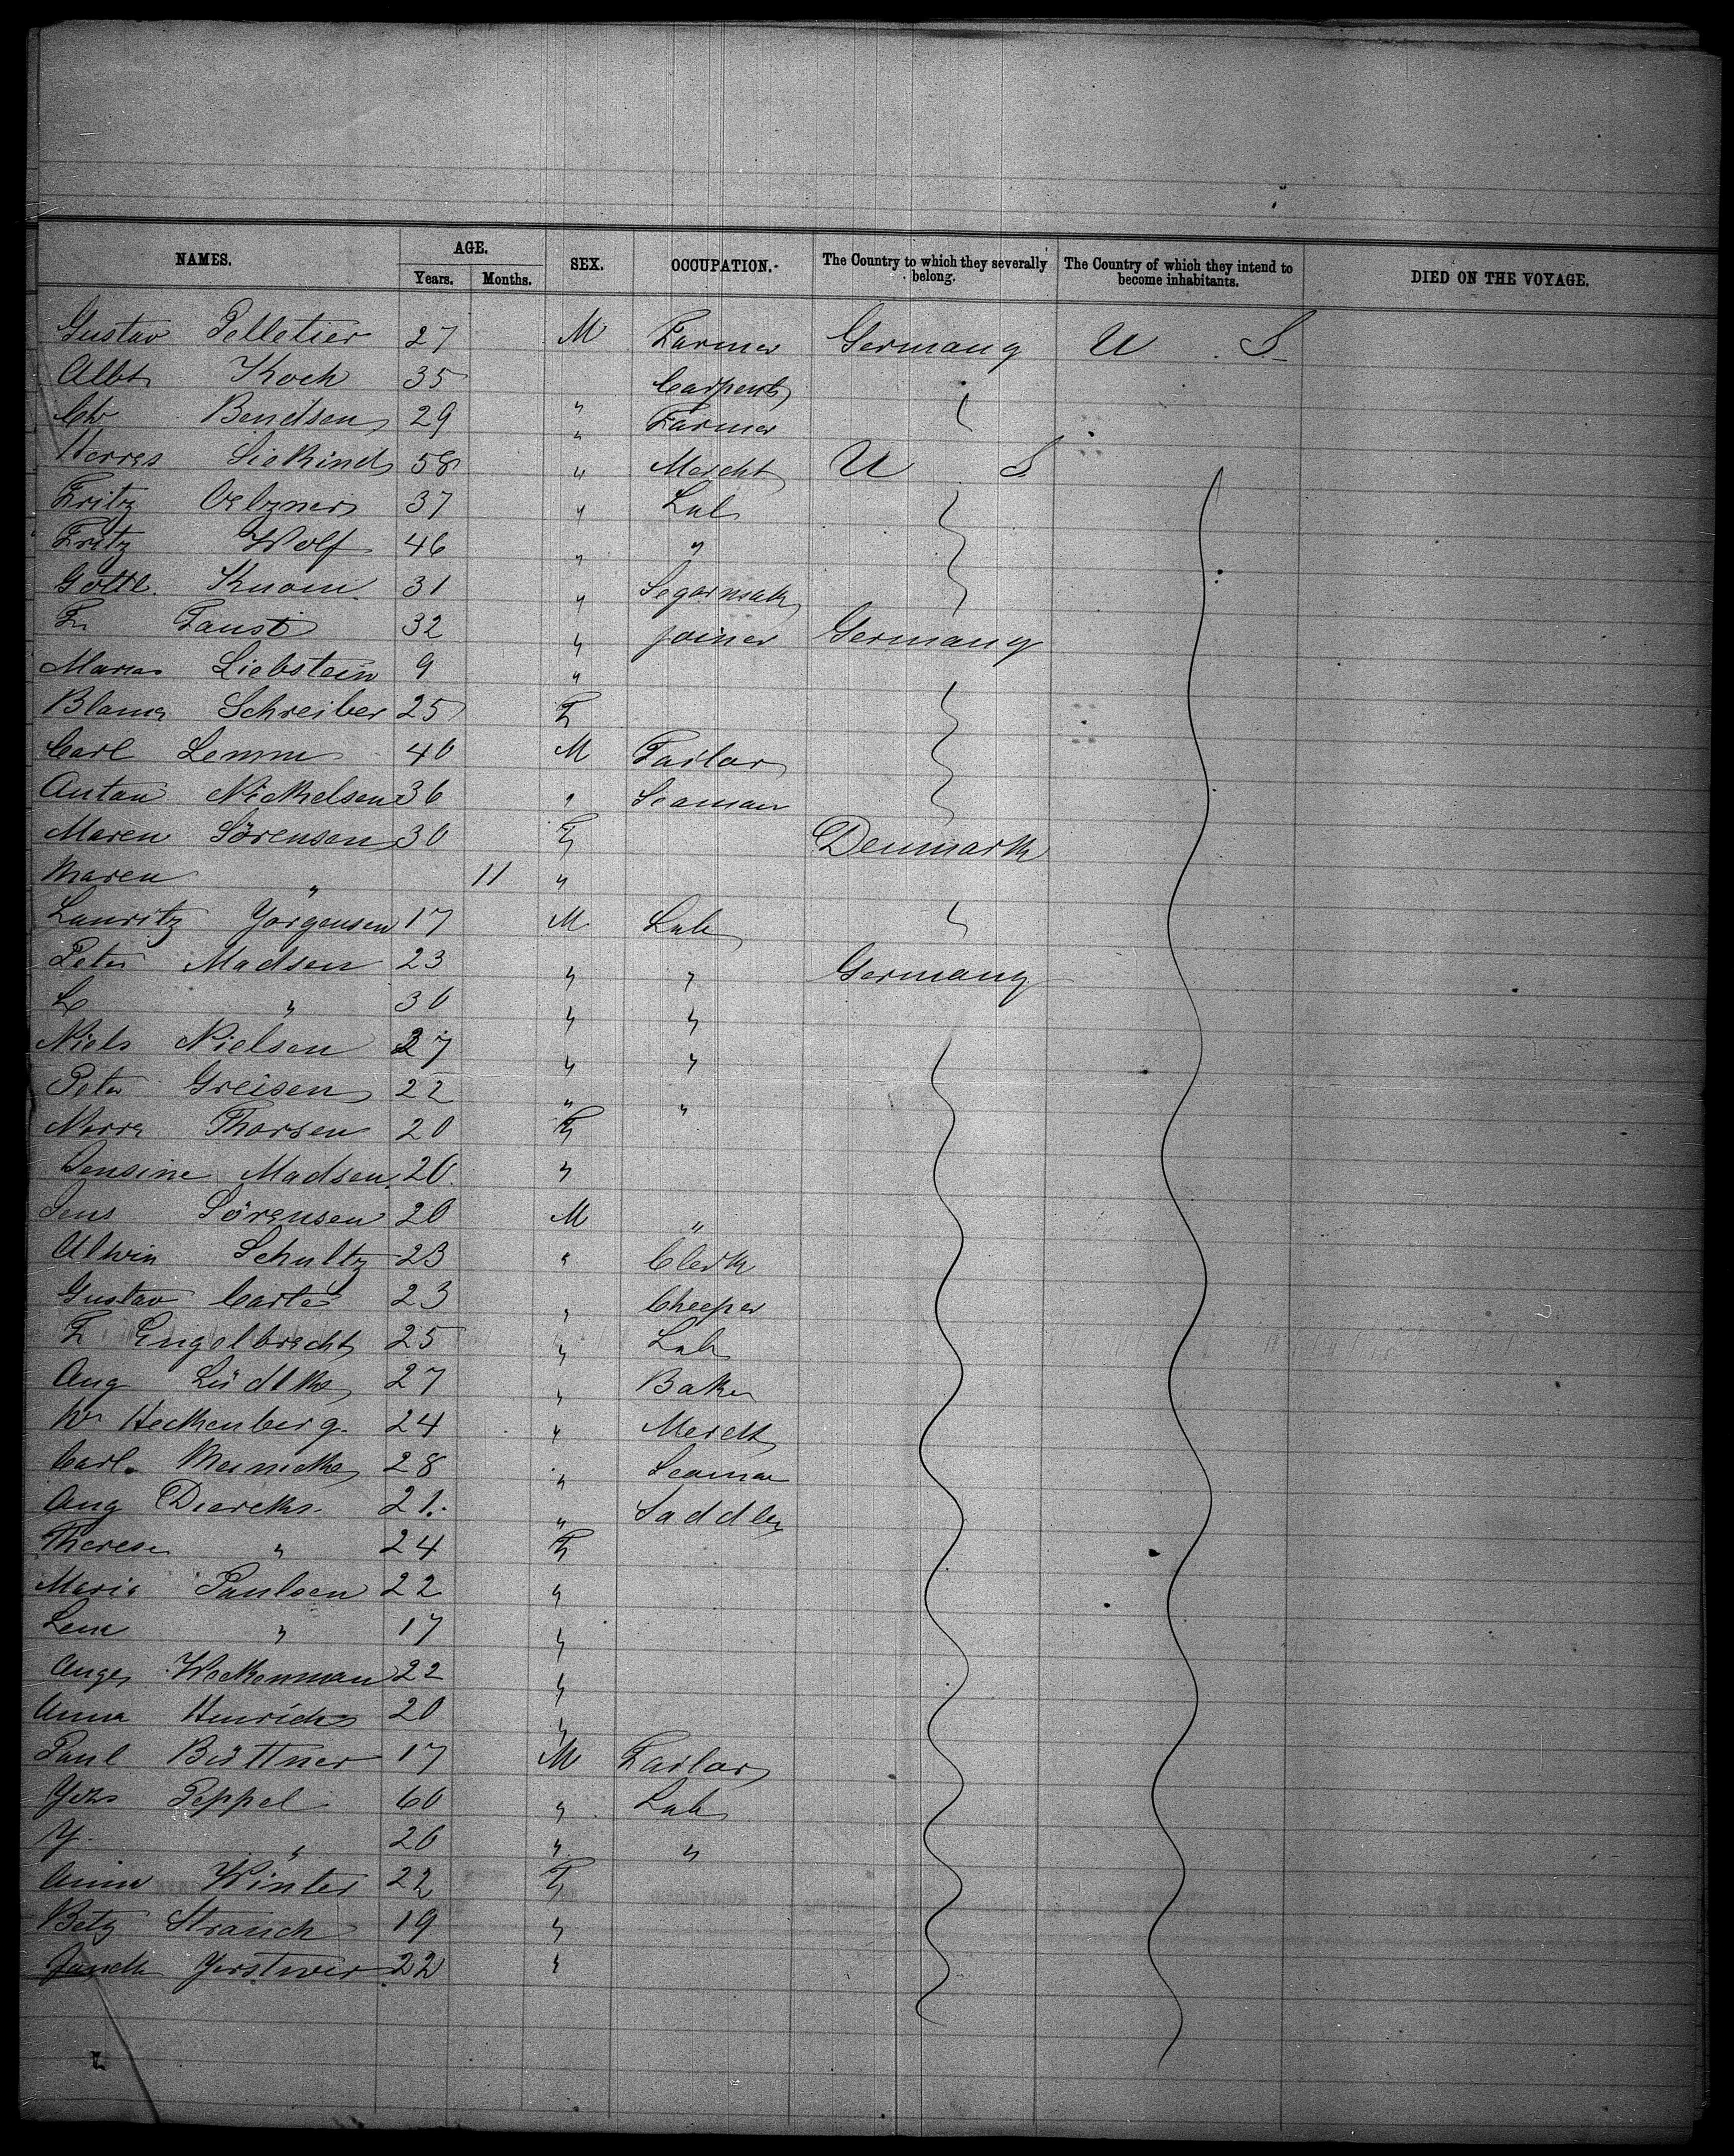 NAMES. AGE. Years. Months. SEX. OCCUPATION. The Country to which they severally belong. The Country of which they intend to become inhabitants. DIED ON THE VOYAGE.
Gustav Pelletier 27 M Farmer Germany U S
Albt Koch 35 Carpent
Chr Bendsen 29 " Farmer
Siekind 58 " Mercht U S
Fritz Oelzner 37 " Lab
Fritz Wolf 46 " "
Gottl. 31 " Segarmak
Fr Faust 32 " joiner Germany
Liebstein 9 "
Schreiber 25 F
Carl Lemm 40 M Tailor
Anton Nickelsen 36 " Seaman
Maren Sörensen 30 F Denmark
Maren " 11 "
Lauritz Jorgensen 17 M Lab
Peter Madsen 23 " " Germany
" 30 " "
Niels Nielsen 27 " "
Peter Greisen 22 " "
Thorsen 20 F
Jensine Madsen 20 "
Jens Sörensen 20 M "
Alwin Schultz 23 " Clerk
Gustav 23 "
F Engelbrecht 25 " Lab
Aug Lüdtke 27 " Baker
Wm Heckenberg 24 " Mercht
Carl Meinicke 28 " Seaman
Aug Diercks 21 " Saddler
Therese " 24 F
Maria Paulsen 22 "
Lena " 17 "
Weckenman 22 "
Anna Henrichs 20 "
Paul Büttner 17 M Tailor
Peppel 60 " Lab
" 20 " "
Anna Winter 22 F
Betz Strauch 19 "
22 "